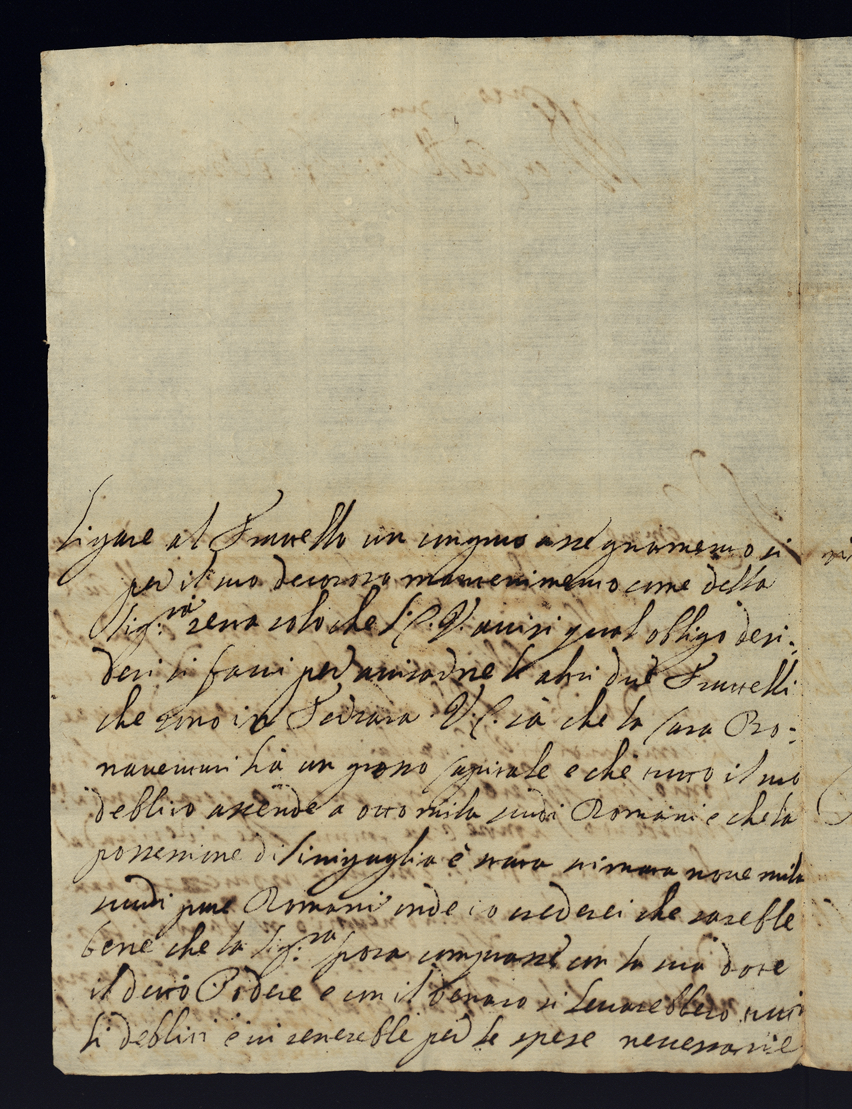 ligare al Fratello un congruo assegnamento si
per il suo decoroso mantenimento come della
Sig.ra senza solo che S.C.V. avisi qual obligo desi-
deri si facci per avisarne li altri due Fratelli
che sono in Ferrara V.S. sà che la Casa Bo-
naventuri hà un grosso capitale e che tutto il suo
debbito assende a otto mila scudi Romani e che la
possessione di Sinigaglia è stata stimata nove mila
scudi pure Romani onde io crederei che sarebbe
bene che la Sig.ra sposa comprasse con la sua dote
il detto Podere e con il denaro si levarebbero tutti
li debbiti e vi restarebbe per le spese necessarie